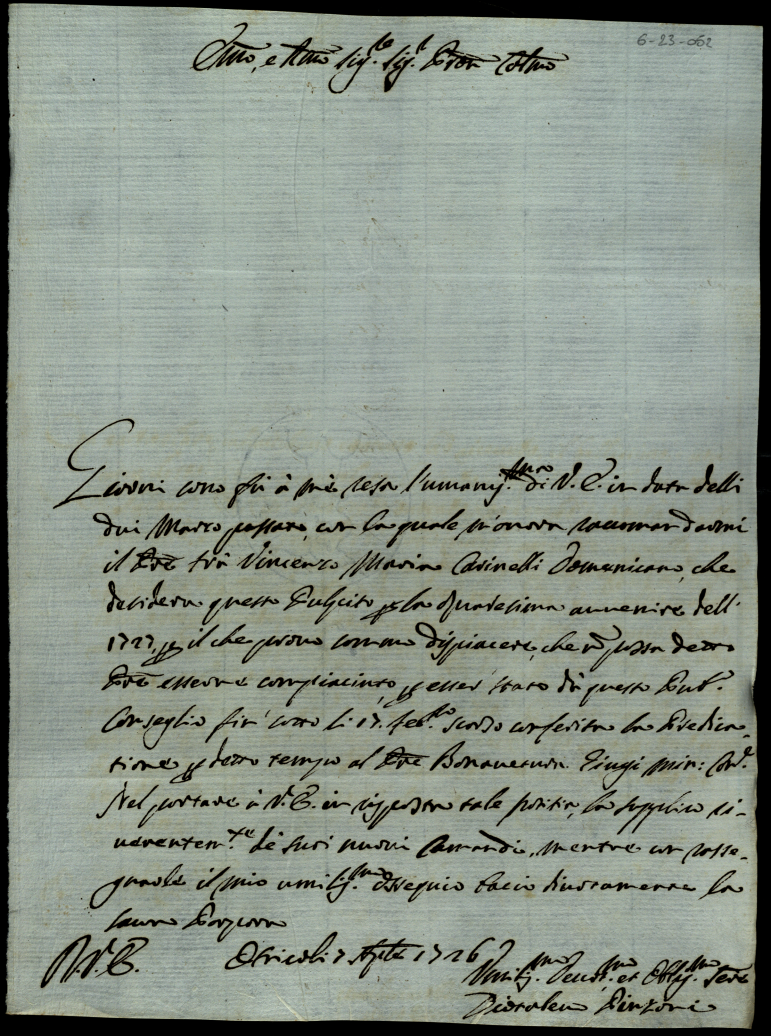 6-23-062
Emo, e Rmo Sig.re Sig.r Pron Colmo
Giorni sono fù à me resa l'umanis.ma di V. E. in data delli
dui Marzo passato, con la quale m'onora raccomandarmi
il Pre frà Vincenzo Maria Domenicano, che
desidera questo Pulpito per la Quaresima avvenire dell'
1727, per il che provo sommo dispiacere, che non possa detto
Pre esserne compiaciuto, per esser stato da questo Pub.
Conseglio fin sotto li 17. feb.ro scorso conferita la Predica-
tione per detto tempo al Pre Bonaventura Min: Con.
Nel portare à V. E. in risposta tale notitia, la supplico ri-
verentem.te de suoi nuovi Comandi, mentre con rasse-
gnarle il mio umilis.mo ossequio bacio divotamente la
sacra Porpora
D. V. E. Otricoli 7 Aple 1726
Umilis.mo Devot.mo et Oblig.mo Serre